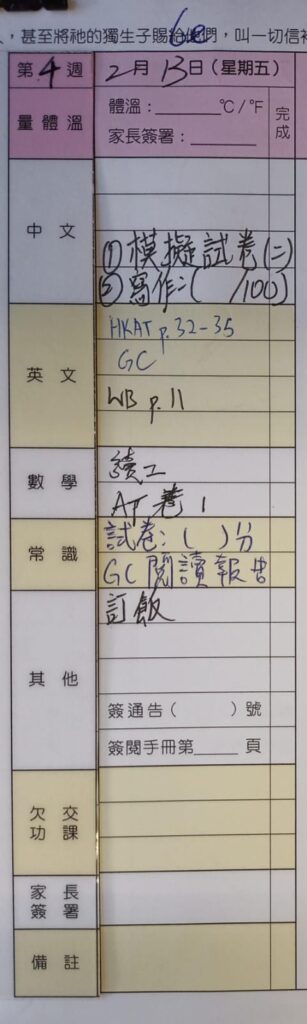 ，甚至將祂的獨生子賜給他們，叫一切信
6e
第4週 2月13日(星期五)
量體溫
體溫：______℃/℉
家長簽署：______
完成
中文
①模擬試卷(二)
②寫作:( /100)
英文
HKAT p.32-35
GC
WB p.11
數學
續工
AP卷1
常識
試卷:( )分
GC閱讀報告
其他
訂飯
簽通告( )號
簽閱手冊第____頁
欠交功課
家長簽署
備註